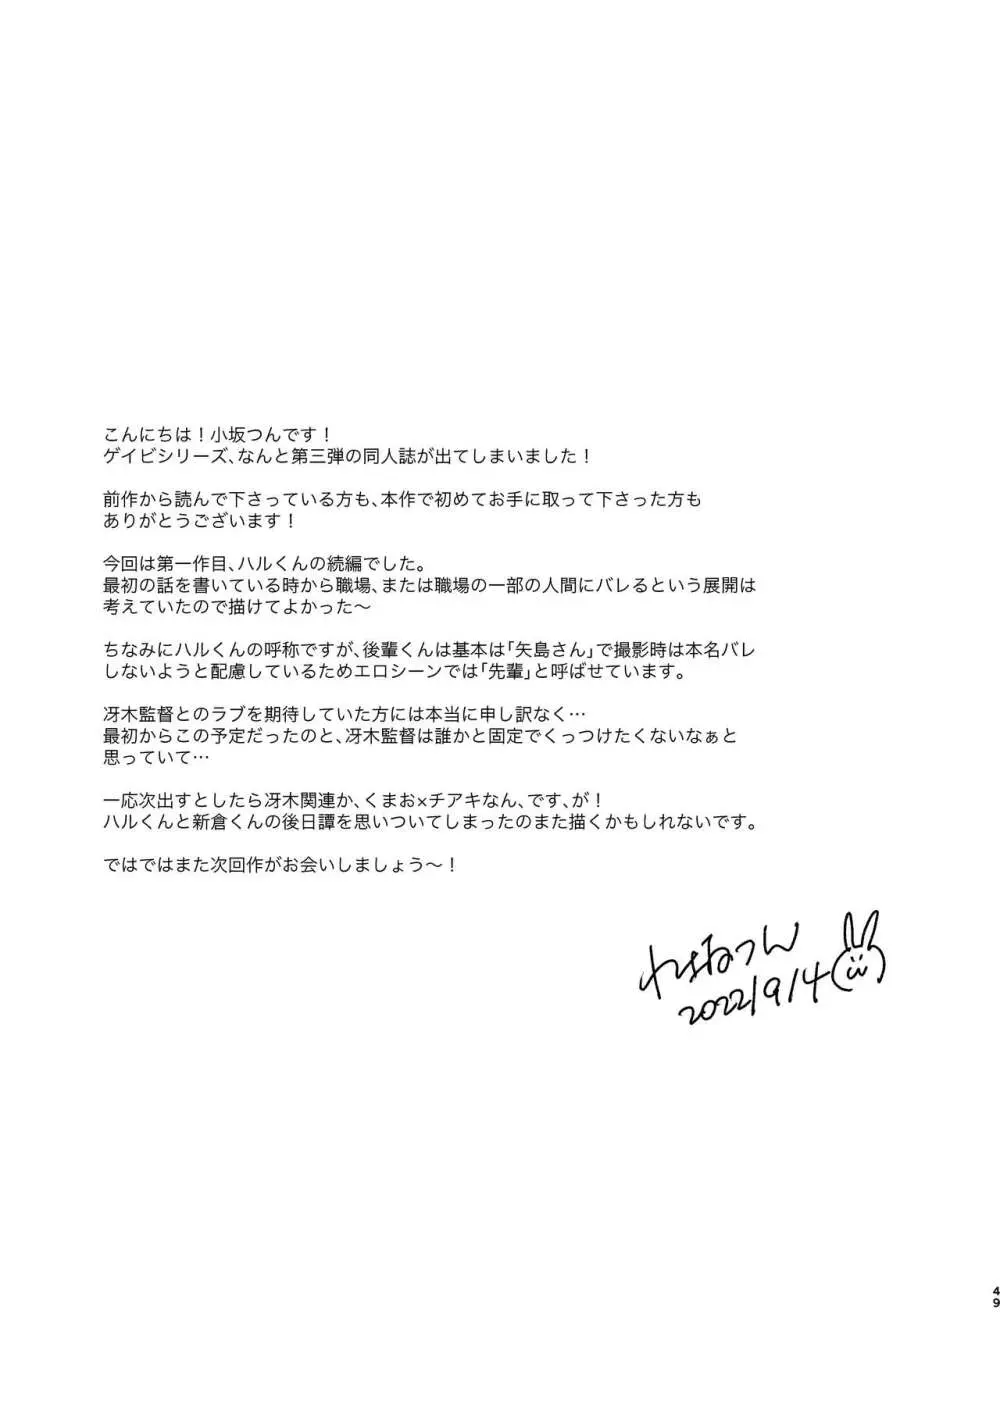 こんにちは！小坂つんです！
ゲイビシリーズ、なんと第三弾の同人誌が出てしまいました！
前作から読んで下さっている方も、本作で初めてお手に取って下さった方も
ありがとうございます！
今回は第一作目、ハルくんの続編でした。
最初の話を書いている時から職場、または職場の一部の人間にバレるという展開は
考えていたので描けてよかった～
ちなみにハルくんの呼称ですが、後輩くんは基本は「矢島さん」で撮影時は本名バレ
しないようと配慮しているためエロシーンでは「先輩」と呼ばせています。
冴木監督とのラブを期待していた方には本当に申し訳なく…
最初からこの予定だったのと、冴木監督は誰かと固定でくっつけたくないなぁと
思っていて…
一応次出すとしたら冴木関連か、くまお×チアキなん、です、が！
ハルくんと新倉くんの後日譚を思いついてしまったのまた描くかもしれないです。
ではではまた次回作がお会いしましょう～！
2022/9/4
49